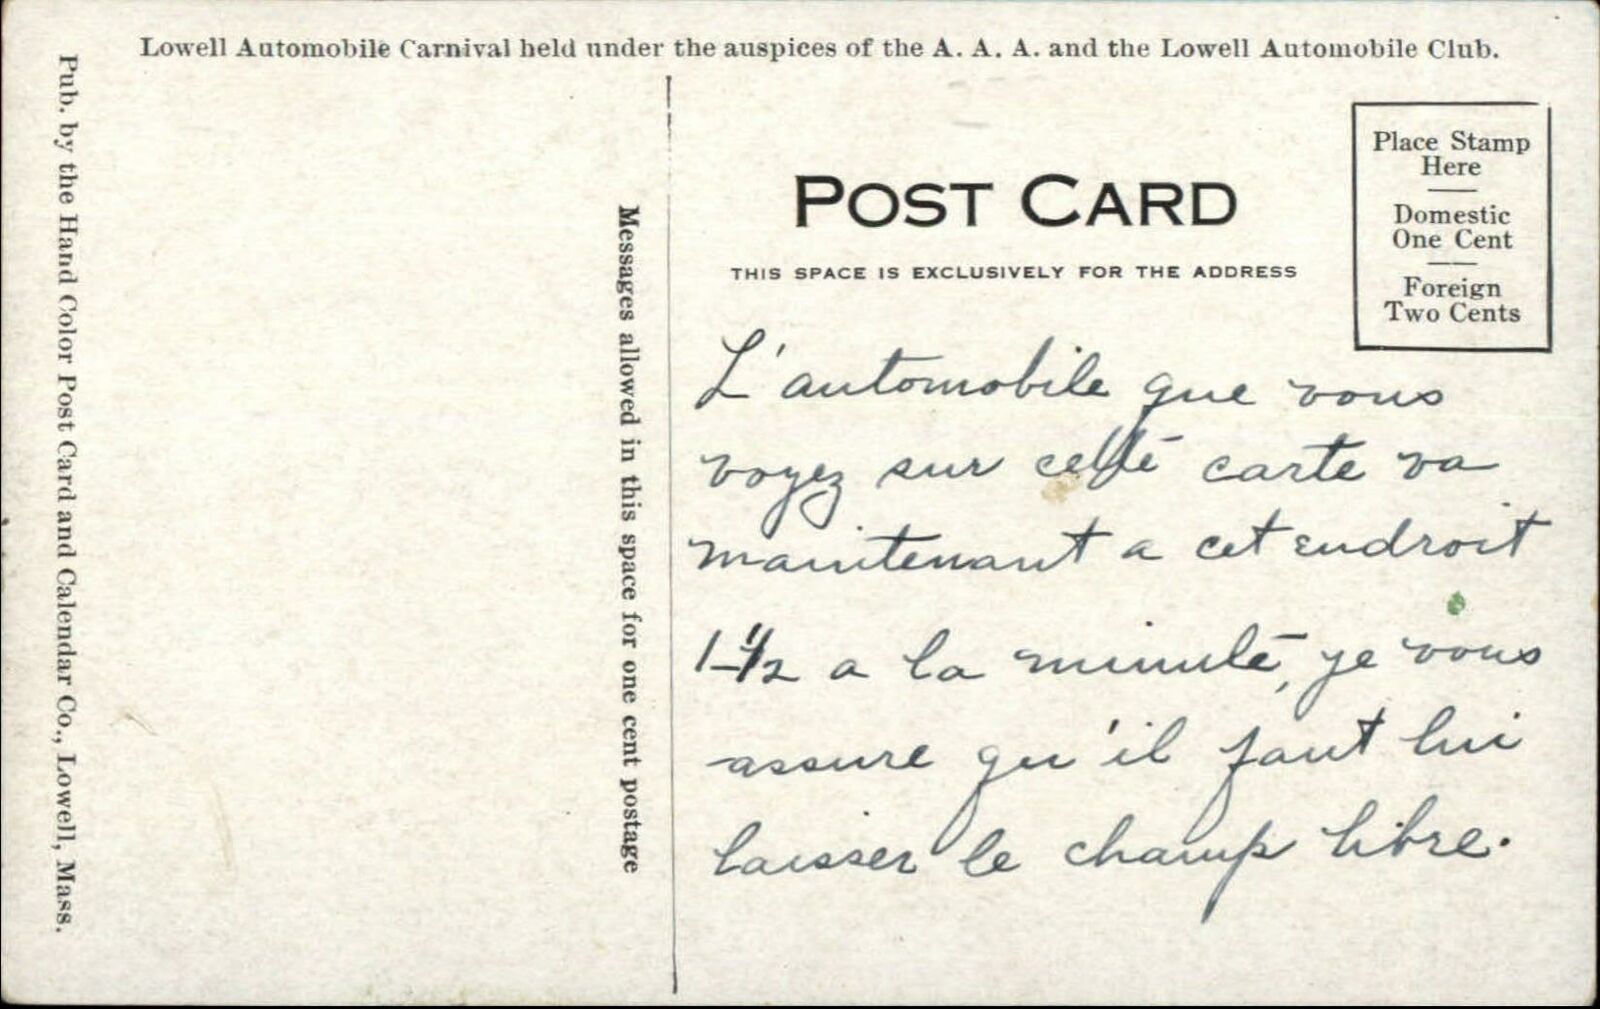 Lowell Automobile Carnival held under the auspices of the A. A. A. and the Lowell Automobile Club.
Pub. by the Hand Color Post Card and Calendar Co., Lowell, Mass.
Messages allowed in this space for one cent postage
POST CARD
THIS SPACE IS EXCLUSIVELY FOR THE ADDRESS
Place Stamp
Here
Domestic
One Cent
Foreign
Two Cents
L'automobile que vous
voyez sur cette carte va
maintenant a cet endroit
1 1/2 a la minute, je vous
assure qu'il faut lui
laisser le champ libre.